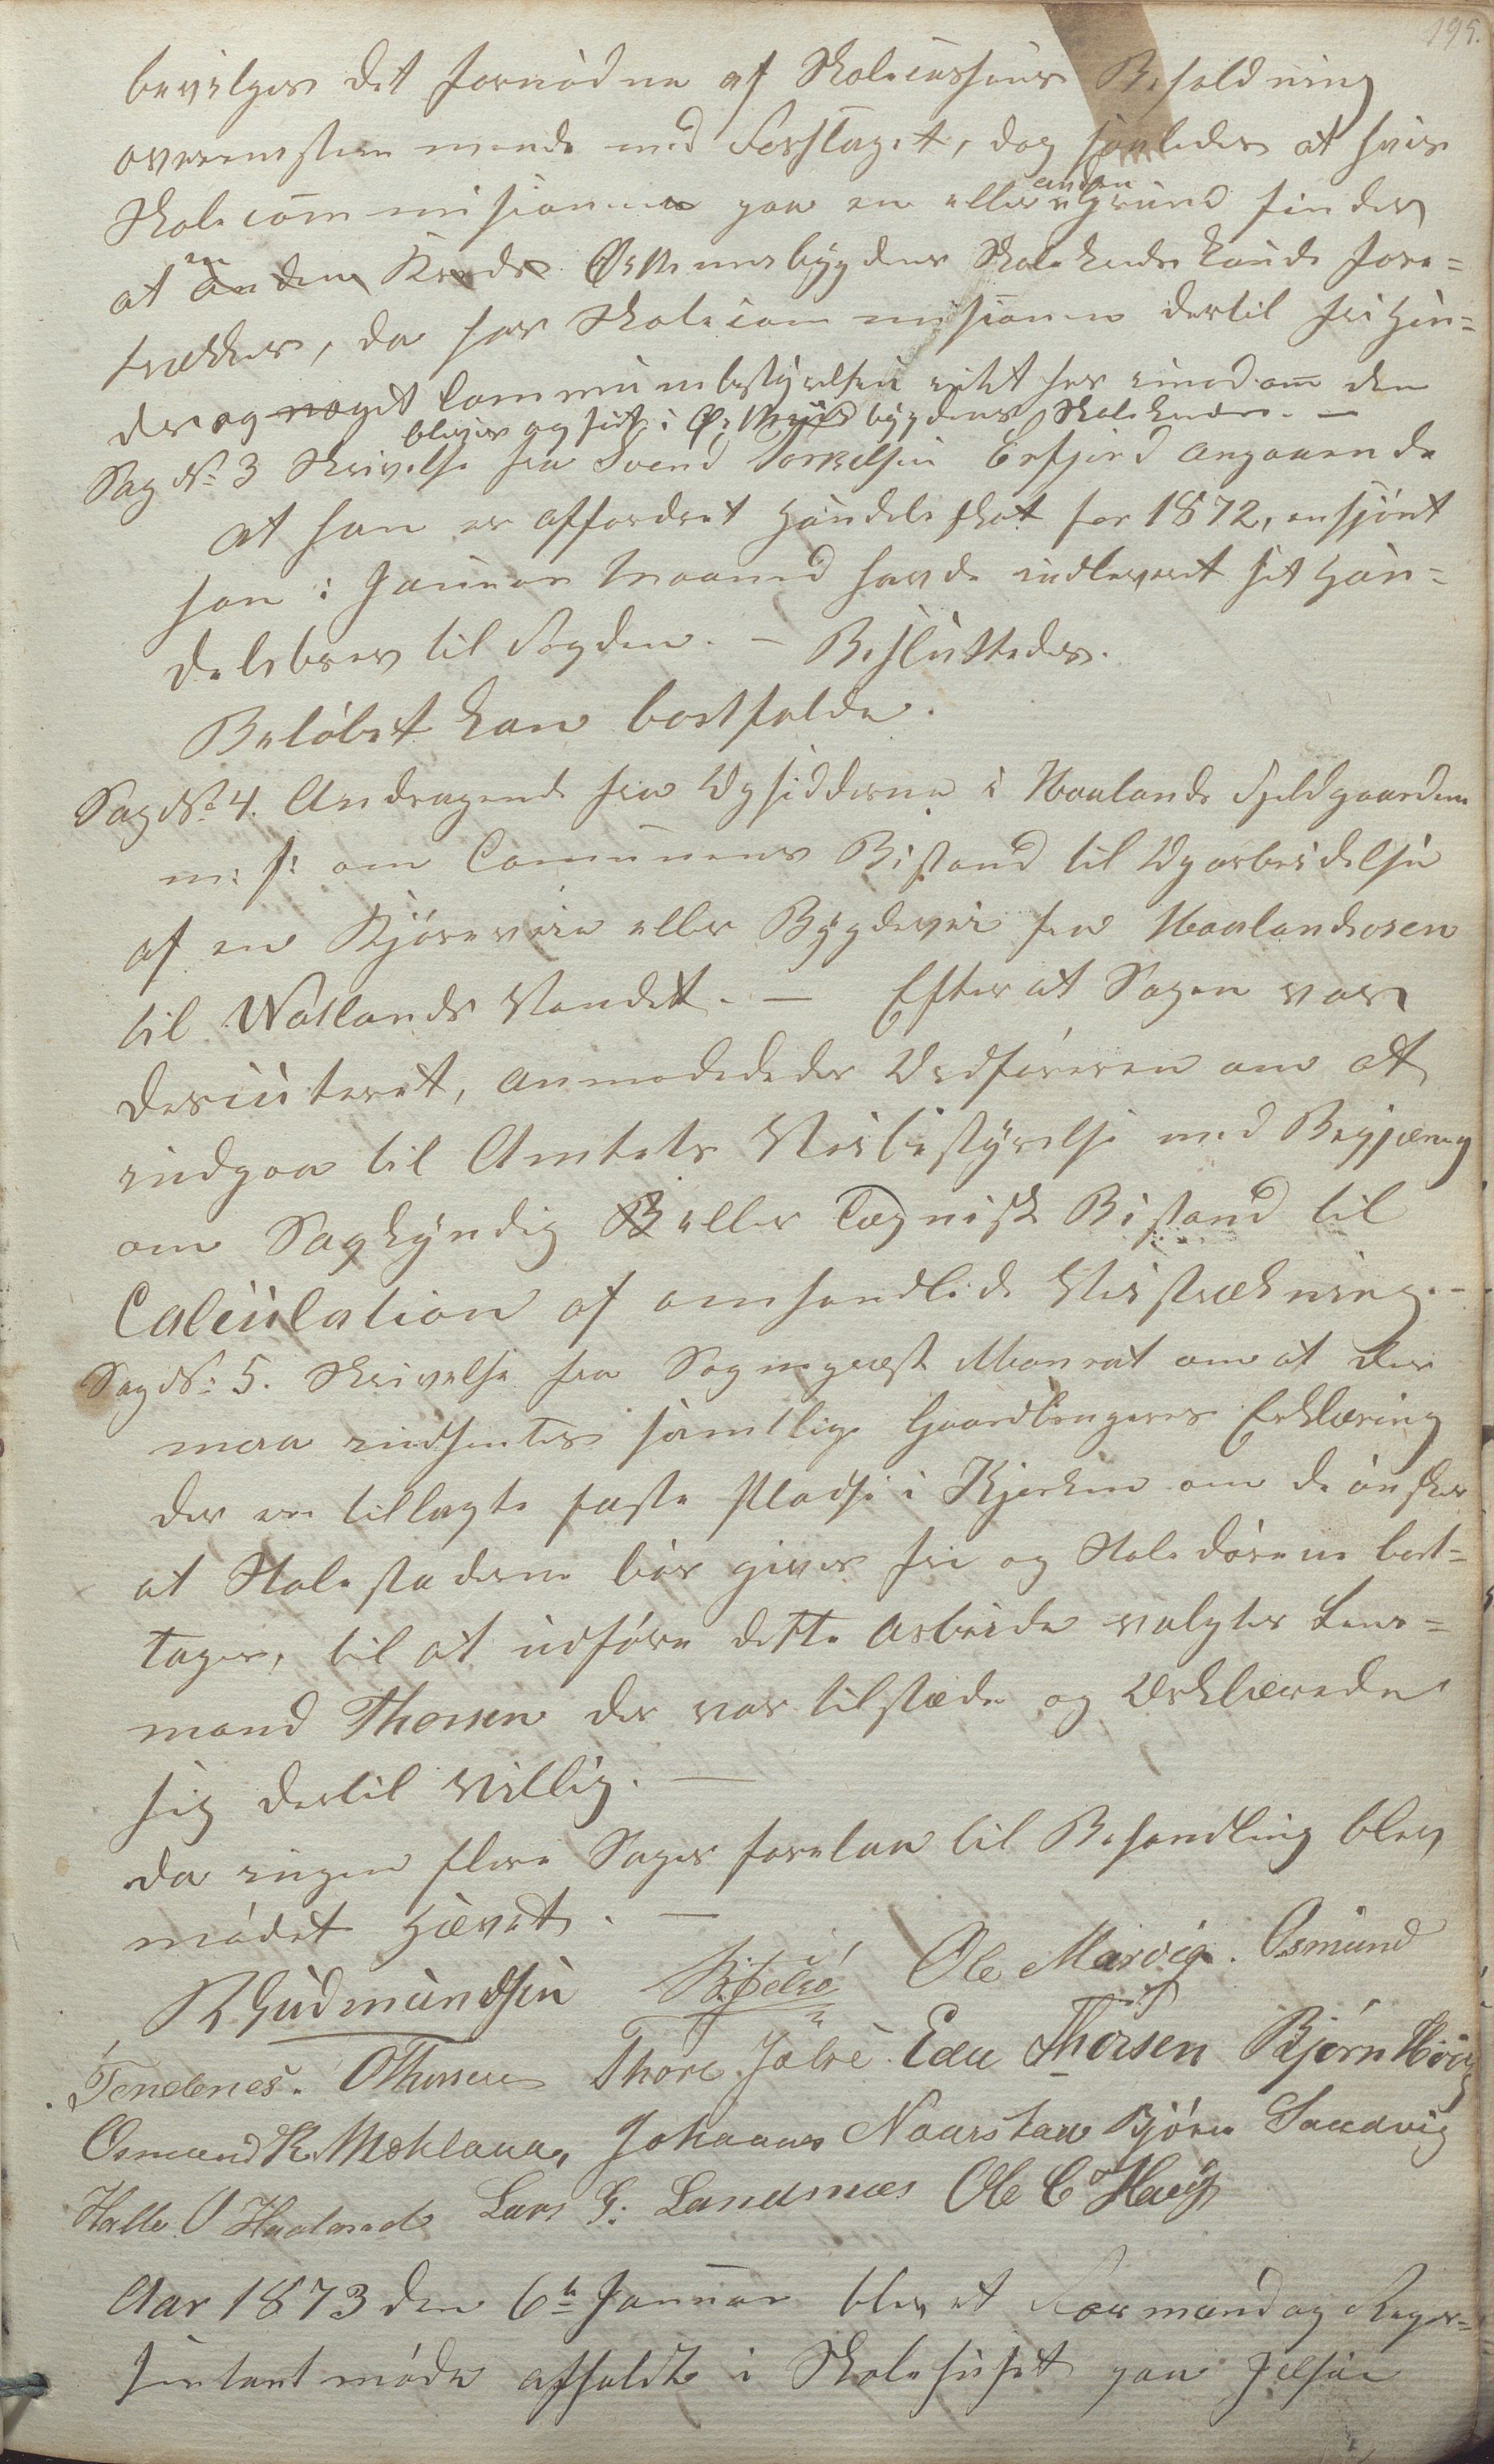 195.
bevilges det fornødne af Skolecassens Beholdning
overensstemmende med Forslaget, dog saaledes at hvis
Skolecommisionen paa en eller anden Grund finder
at en anden Kreds Østennebygdens Skolekreds kunde fore=
trækkes, da har Skolecommisionen dertil frihæn=
der og noget Communebestyrelsen intet her imod om den
bliver og sat i bygdens Skolekreds. —
Sag No 3 Skrivelse fra Svend Torkelsen Erfjord angaaende
at han er affordret Handelsskat for 1872, ensjønt
han i Januar Maaned havde indleveret sit Han=
delsbrev til Fogden. — Besluttedes.
Beløbet kan bortfalde.
Sag No 4. Andragende fra Opsidderne i Haalands Fjeldgaardene
m: f: om Communens Bistand til Oparbeidelse
af en Kjørevei eller Bygdevei fra Haalandsosen
til Vatlands Vandet. — Efter at Sagen var
descuteret, anmodedes Ordføreren om at
indgaa til Amtets Veibestyrelse med Begjæring
om Sagkyndig B eller Tægnisk Bistand til
Calculation af omhandlede Veistrækning. –
Sag No 5. Skrivelse fra Sogneprest Monrat om at der
maa indhentes samtlige Gaardbrugeres Erklæring
der er tillagte faste Pladse i Kjerken om de ønsker
at Stolestaderne bør gives fri og Stoledørene bort=
tages, til at udføre dette Arbeide valgtes Lens=
mand Thorsen der var tilstæde og Erklærede
sig dertil Villig. —
da ingen flere Sager forelaa til Behandling blev
mødet Hævet. —
R Gudmundsen Ole Marvig. Osmund
Tendenes. OThorsen Thore Jelse. Edu Thorsen Bjørn
Osmund R. Mehlaua, Johannes Naarstad Bjørn Sandvig
Halle O Haaland Lars G. Landsnæs Ole C Haug
Aar 1873 den 6te Januar blev et Formand og Repre=
sentant møde afholdt i Skolehuset paa Jelsøe